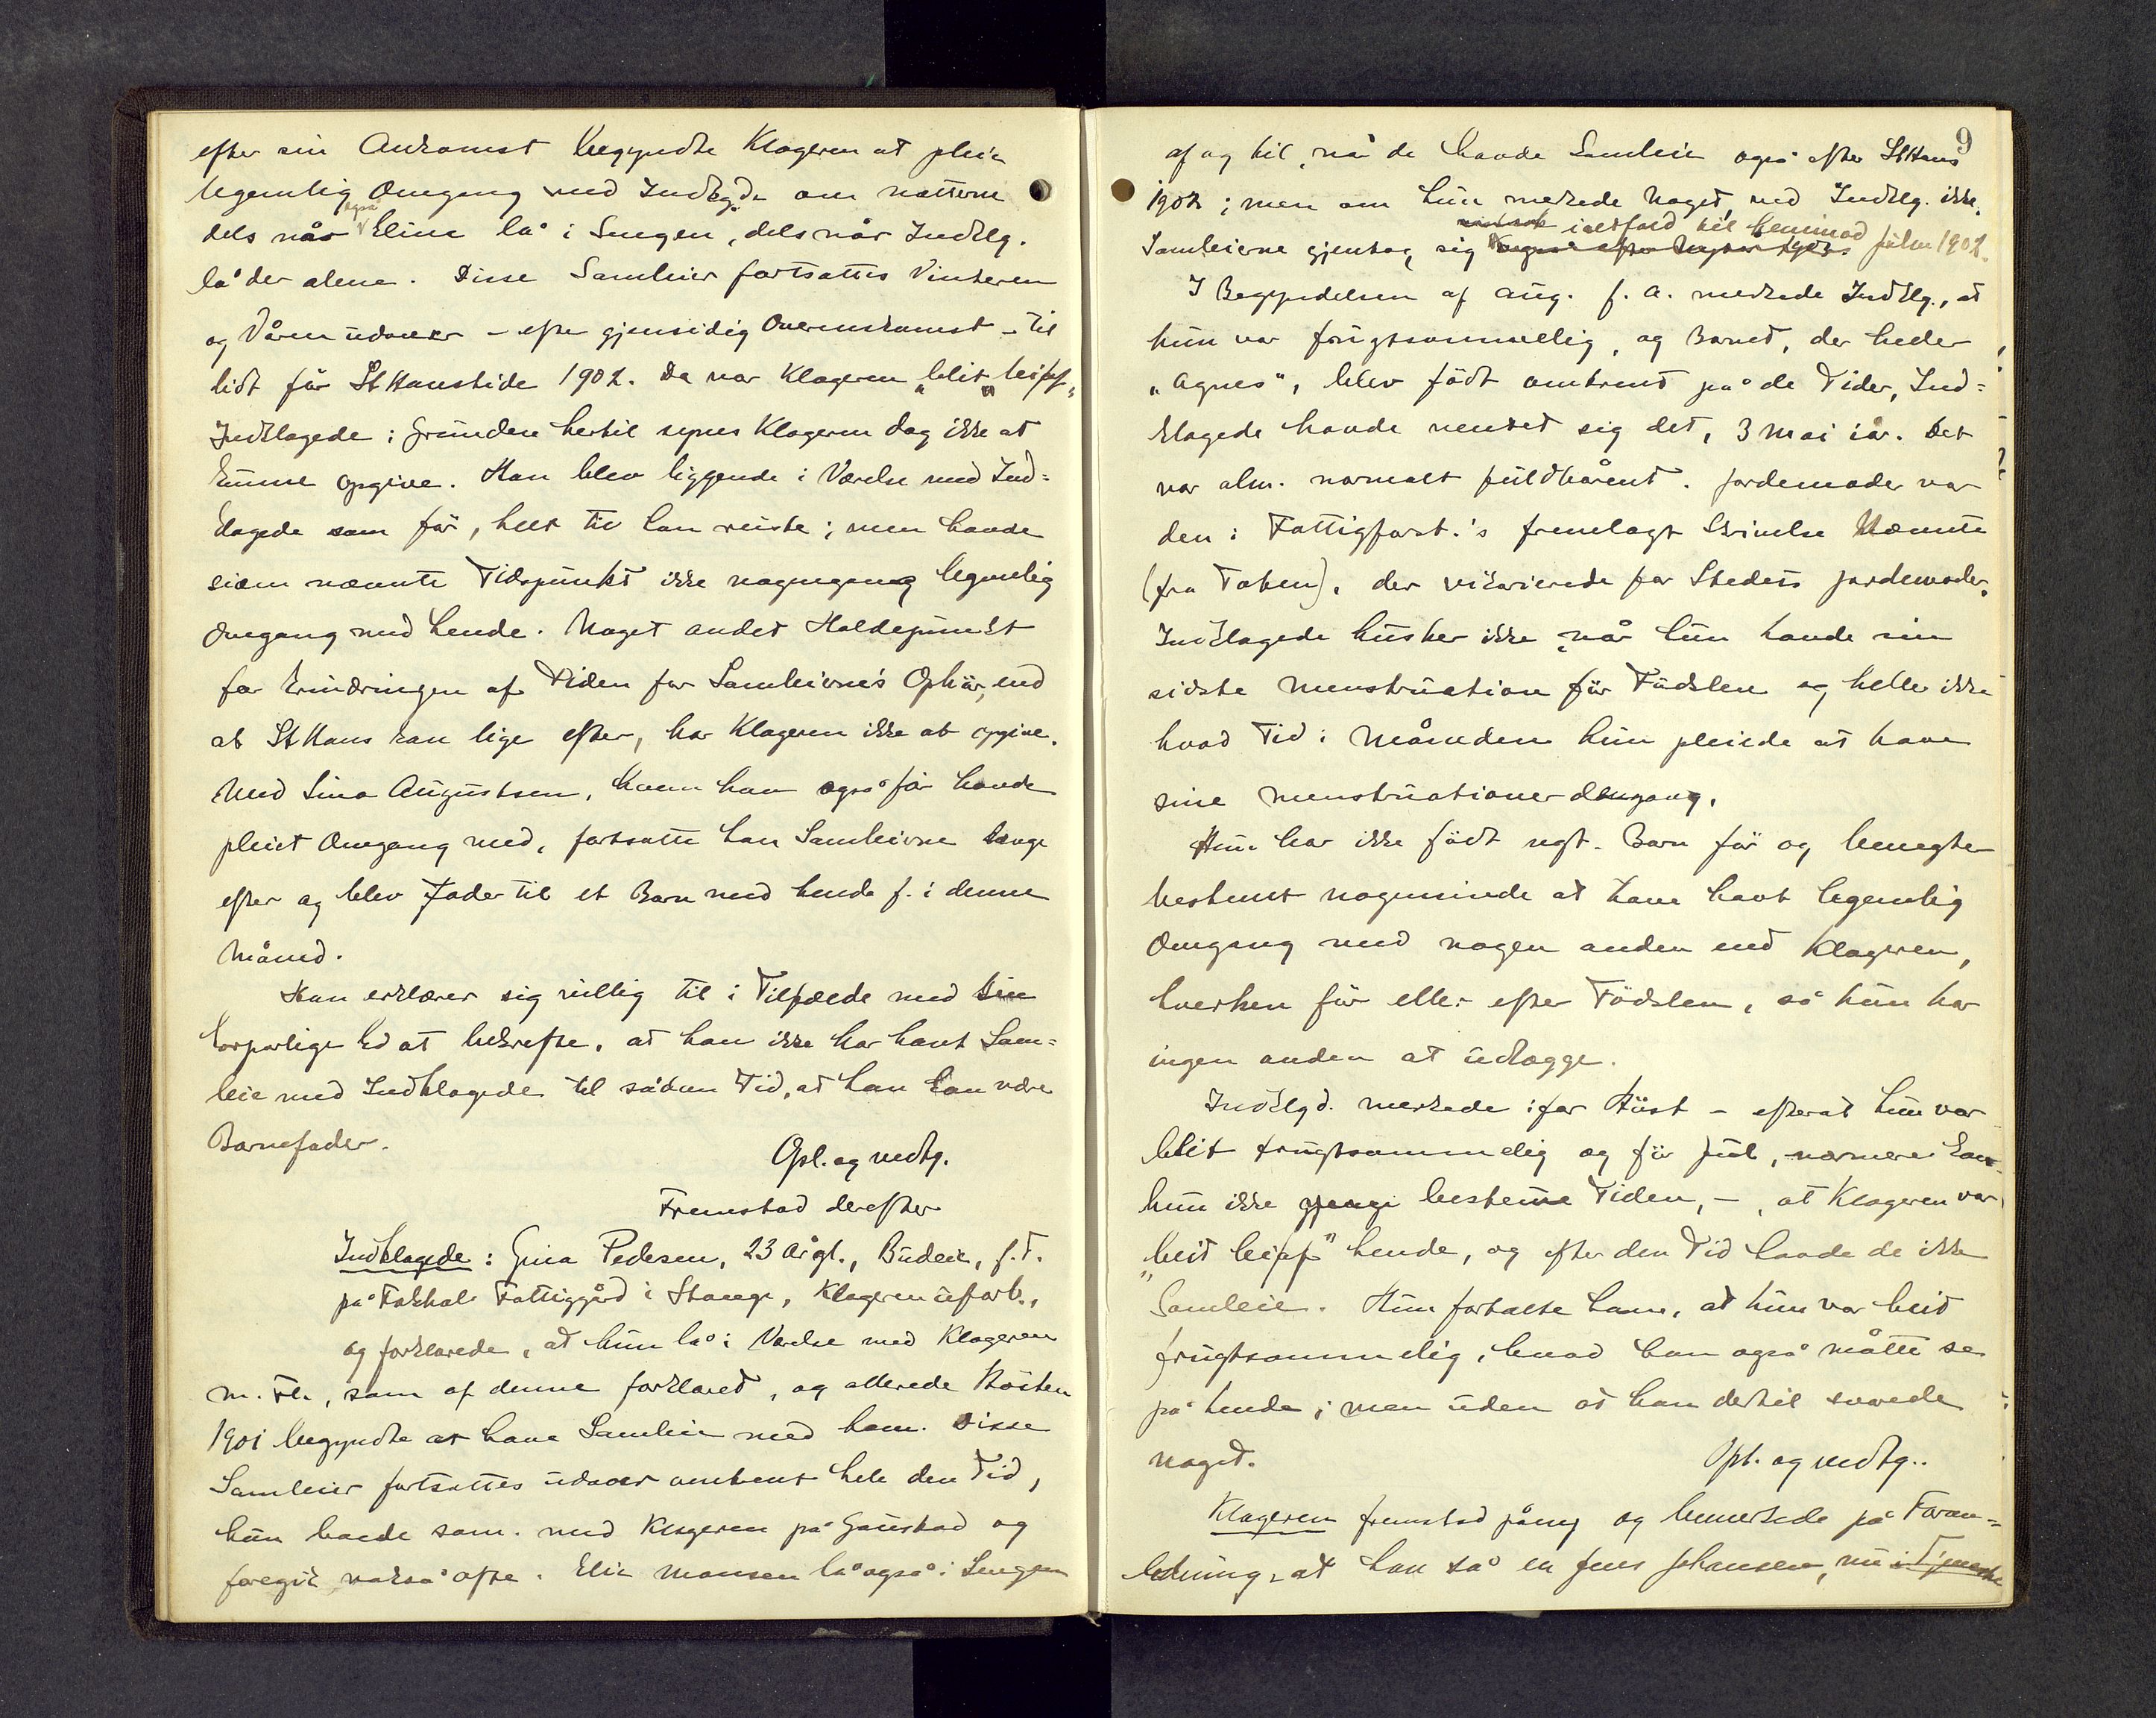 efter sin Ankomst begyndte Klageren at pleie
legemlig Omgang med Indklgde om nætterne
dels når også Eline lå i Sengen, dels når Indklg.
lå der alene. Disse Samleier fortsattes Vinteren
og Våren udover – efter gjensidig Overenskomst – til
lidt før StHanstide 1902. Da var Klageren „blit leipå"
Indklagede; Grunden hertil synes Klageren dog ikke at
kunne opgive. Han blev liggende i Værelse med Ind=
klagede som før, helt til han reiste; men havde
siden nævnte Tidspunkt ikke nogengang legemlig
Omgang med hende. Noget andet Holdepunkt
for Erindringen af Tiden for Samleierne's Ophør, end
at StHans kan lige efter, har Klageren ikke at opgive.
Med Lina Augustsen, hvem han også før havde
pleiet Omgang med, fortsatte han Samleierne længe
efter og blev Fader til et Barn med hende f. i denne
Måned.
Han erklærer sig villig til i Tilfælde med Sin
korporlige Ed at bekræfte, at han ikke har havt Sam=
leie med Indklagede til sådan Tid, at han kan være
Barnefader.
Opl. og vedtg.
Fremstod derefter
Indklagede: Gina Pedersen, 23 År gl., Budeie, f.T.
på Fattiggård i Stange, Klageren uforb.,
og forklarede, at hun lå i Værelse med Klageren
m. Fl., som af denne forklaret, og allerede Høsten
1901 begyndte at have Samleie med ham. Disse
Samleier fortsattes udover omtrent hele den Tid,
hun havde sam. med Klageren på Gaustad og
foregik nokså ofte. Elie Monsen lå også i Sengen
9
af og til, nå de havde Samleie også efter StHans
1902; men om hun merkede noget med Indklg. ikke.
ialtfald til henimod Julen 1902.
Samleierne gjentog sig
I Begyndelsen af Aug. f. A. merkede Indklg., at
hun var frugtsommelig, og Barnet, der heder
„Agnes", blev født omtrent på de Tider, Ind=
klagede havde ventet sig det, 3 Mai iår. Det
var alm. normalt fuldbårent. Jordemoder var
den i Fattigforst.'s fremlagt Skrivelse Nævnte
(fra Toten), der vikarierede for Stedets Jordemoder.
Indklagede husker ikke, når hun havde sin
sidste Menstruation før Fødslen og heller ikke
hvad Tid i Måneden hun pleiede at have
sine Menstruationer dengang.
Hun har ikke født uegt. Barn før og benegter
bestemt nogensinde at have havt legemlig
Omgang med nogen anden end Klageren,
hverken før eller efter Fødslen, så hun har
ingen anden at udlægge.
Indklgd. merkede ifor Høst – efterat hun var
blit frugtsommelig og før Jul, nærmere kan
hun ikke bestemme Tiden, –, at Klageren var
„bleit leipå" hende, og efter den Tid havde de ikke
Samleie. Hun fortalte ham, at hun var bleit
frugtsommelig, hvad han også måtte se
på hende; men uden at han dertil svarede
noget.
Opl. og vedtg..
Klageren fremstod påny og bemerkede på Foran=
ledning, at han så en Jens Johansen, nu i Tjeneste